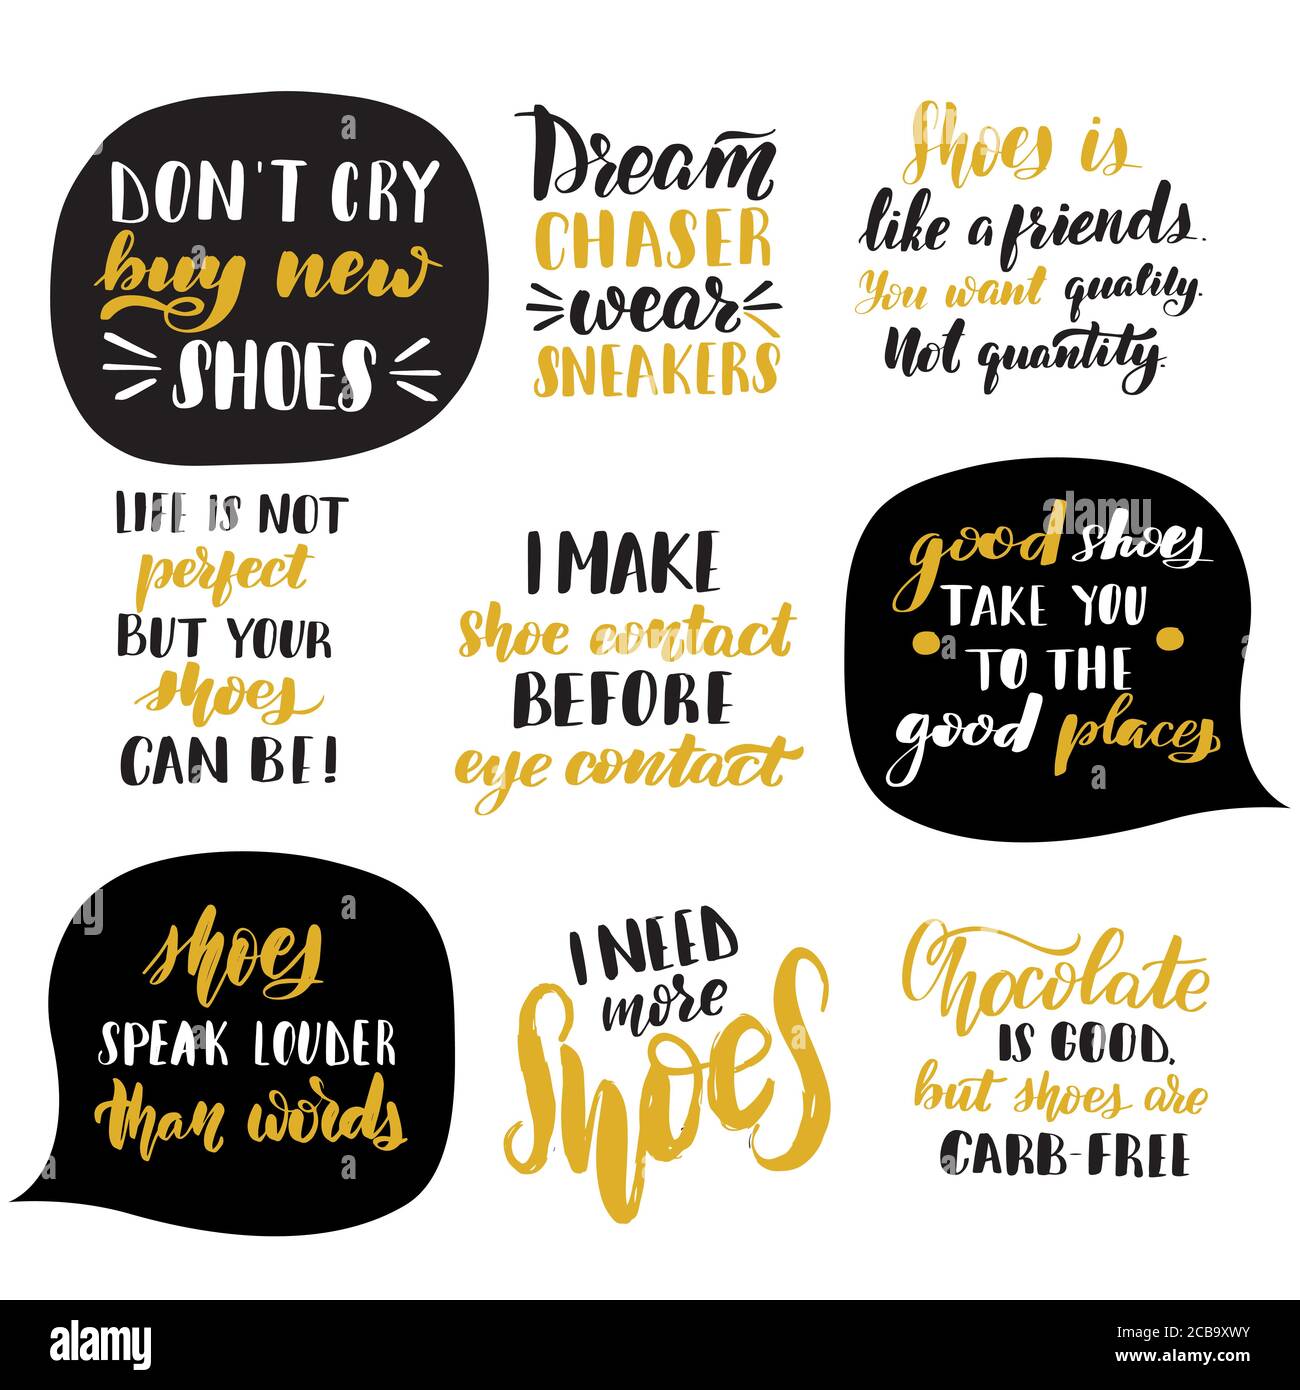 DON'T CRY
buy new
SHOES
Dream
CHASER
wear
SNEAKERS
Shoes is
like a friends.
You want quality.
Not quantity.
LIFE IS NOT
perfect
BUT YOUR
shoes
CAN BE!
I MAKE
shoe contact
BEFORE
eye contact
good shoes
TAKE YOU
TO THE
good places
shoes
SPEAK LOUDER
than words
I NEED
more
Shoes
Chocolate
IS GOOD,
but shoes are
CARB-FREE
a
a
a
a alamy
alamy
Image ID: 2CB9XWY
www.alamy.com